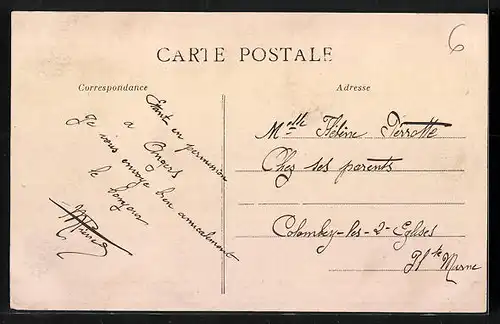 6
CARTE POSTALE
Correspondance
Adresse
Etant en permission
a Angers
Je vous envoye bien amicalement
le bonjour
Melle Hélène Perrotte
Chez ses parents
Colombey-les-2-Eglises
Hte Marne